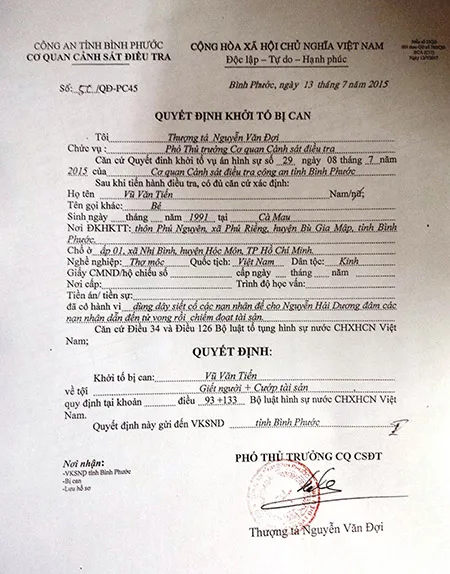 CÔNG AN TỈNH BÌNH PHƯỚC
CƠ QUAN CẢNH SÁT ĐIỀU TRA
CỘNG HÒA XÃ HỘI CHỦ NGHĨA VIỆT NAM
Độc lập - Tự do - Hạnh phúc
Số: /QĐ-PC45
Bình Phước, ngày 13 tháng 7 năm 2015
QUYẾT ĐỊNH KHỞI TỐ BỊ CAN
Tôi Thượng tá Nguyễn Văn Đợi
Chức vụ : Phó Thủ trưởng Cơ quan Cảnh sát điều tra
Căn cứ Quyết đinh khởi tố vụ án hình sự số 29 ngày 08 tháng 7 năm
2015 của Cơ quan Cảnh sát điều tra công an tỉnh Bình Phước
Sau khi tiến hành điều tra, có đủ căn cứ xác định:
Họ tên Vũ Văn Tiến Nam/nữ;
Tên gọi khác: Bé
Sinh ngày tháng năm 1991 tại Cà Mau
Nơi ĐKHKTT: thôn Phú Nguyên, xã Phú Riềng, huyện Bù Gia Mập, tỉnh Bình
Phước.
Chỗ ở ấp 01, xã Nhị Bình, huyện Hóc Môn, TP Hồ Chí Minh.
Nghề nghiệp: Thợ mộc Quốc tịch: Việt Nam Dân tộc: Kinh
Giấy CMND/hộ chiếu số cấp ngày tháng năm
Nơi cấp: Trình độ học vấn:
Tiền án/ tiền sự:
đã có hành vi dùng dây siết cổ các nạn nhân để cho Nguyễn Hải Dương đâm các
nạn nhân dẫn đến tử vong rồi chiếm đoạt tài sản.
Căn cứ Điều 34 và Điều 126 Bộ luật tố tụng hình sự nước CHXHCN Việt
Nam;
QUYẾT ĐỊNH:
Khởi tố bị can: Vũ Văn Tiến
về tội Giết người + Cướp tài sản
quy định tại khoản điều 93 +133 Bộ luật hình sự nước CHXHCN Việt
Nam.
Quyết định này gửi đến VKSND tỉnh Bình Phước
Nơi nhận:
-VKSND tỉnh Bình Phước
-Bị can
-Lưu hồ sơ
PHÓ THỦ TRƯỞNG CQ CSĐT
Thượng tá Nguyễn Văn Đợi